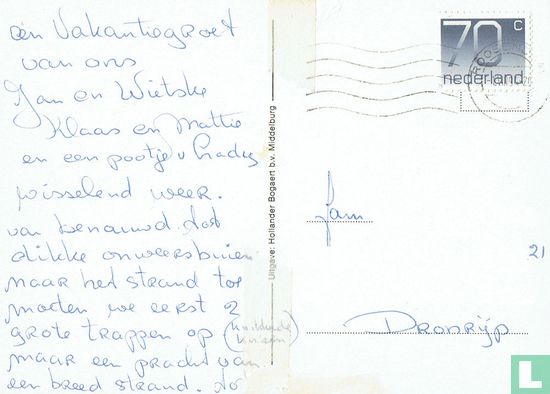 een Vakantiegroet
van ons
Jan en Wietske
Klaas en Mattie
en een pootje v
wisselend weer.
van benauwd tot
dikke onweersbuien
naar het strand toe
moeten we eerst 2
grote trappen op
maar een pracht van
een breed strand.
Uitgave: Hollander Bogaert b.v. Middelburg
70 c
nederland
Fam
21
Dronrijp
LastDodo